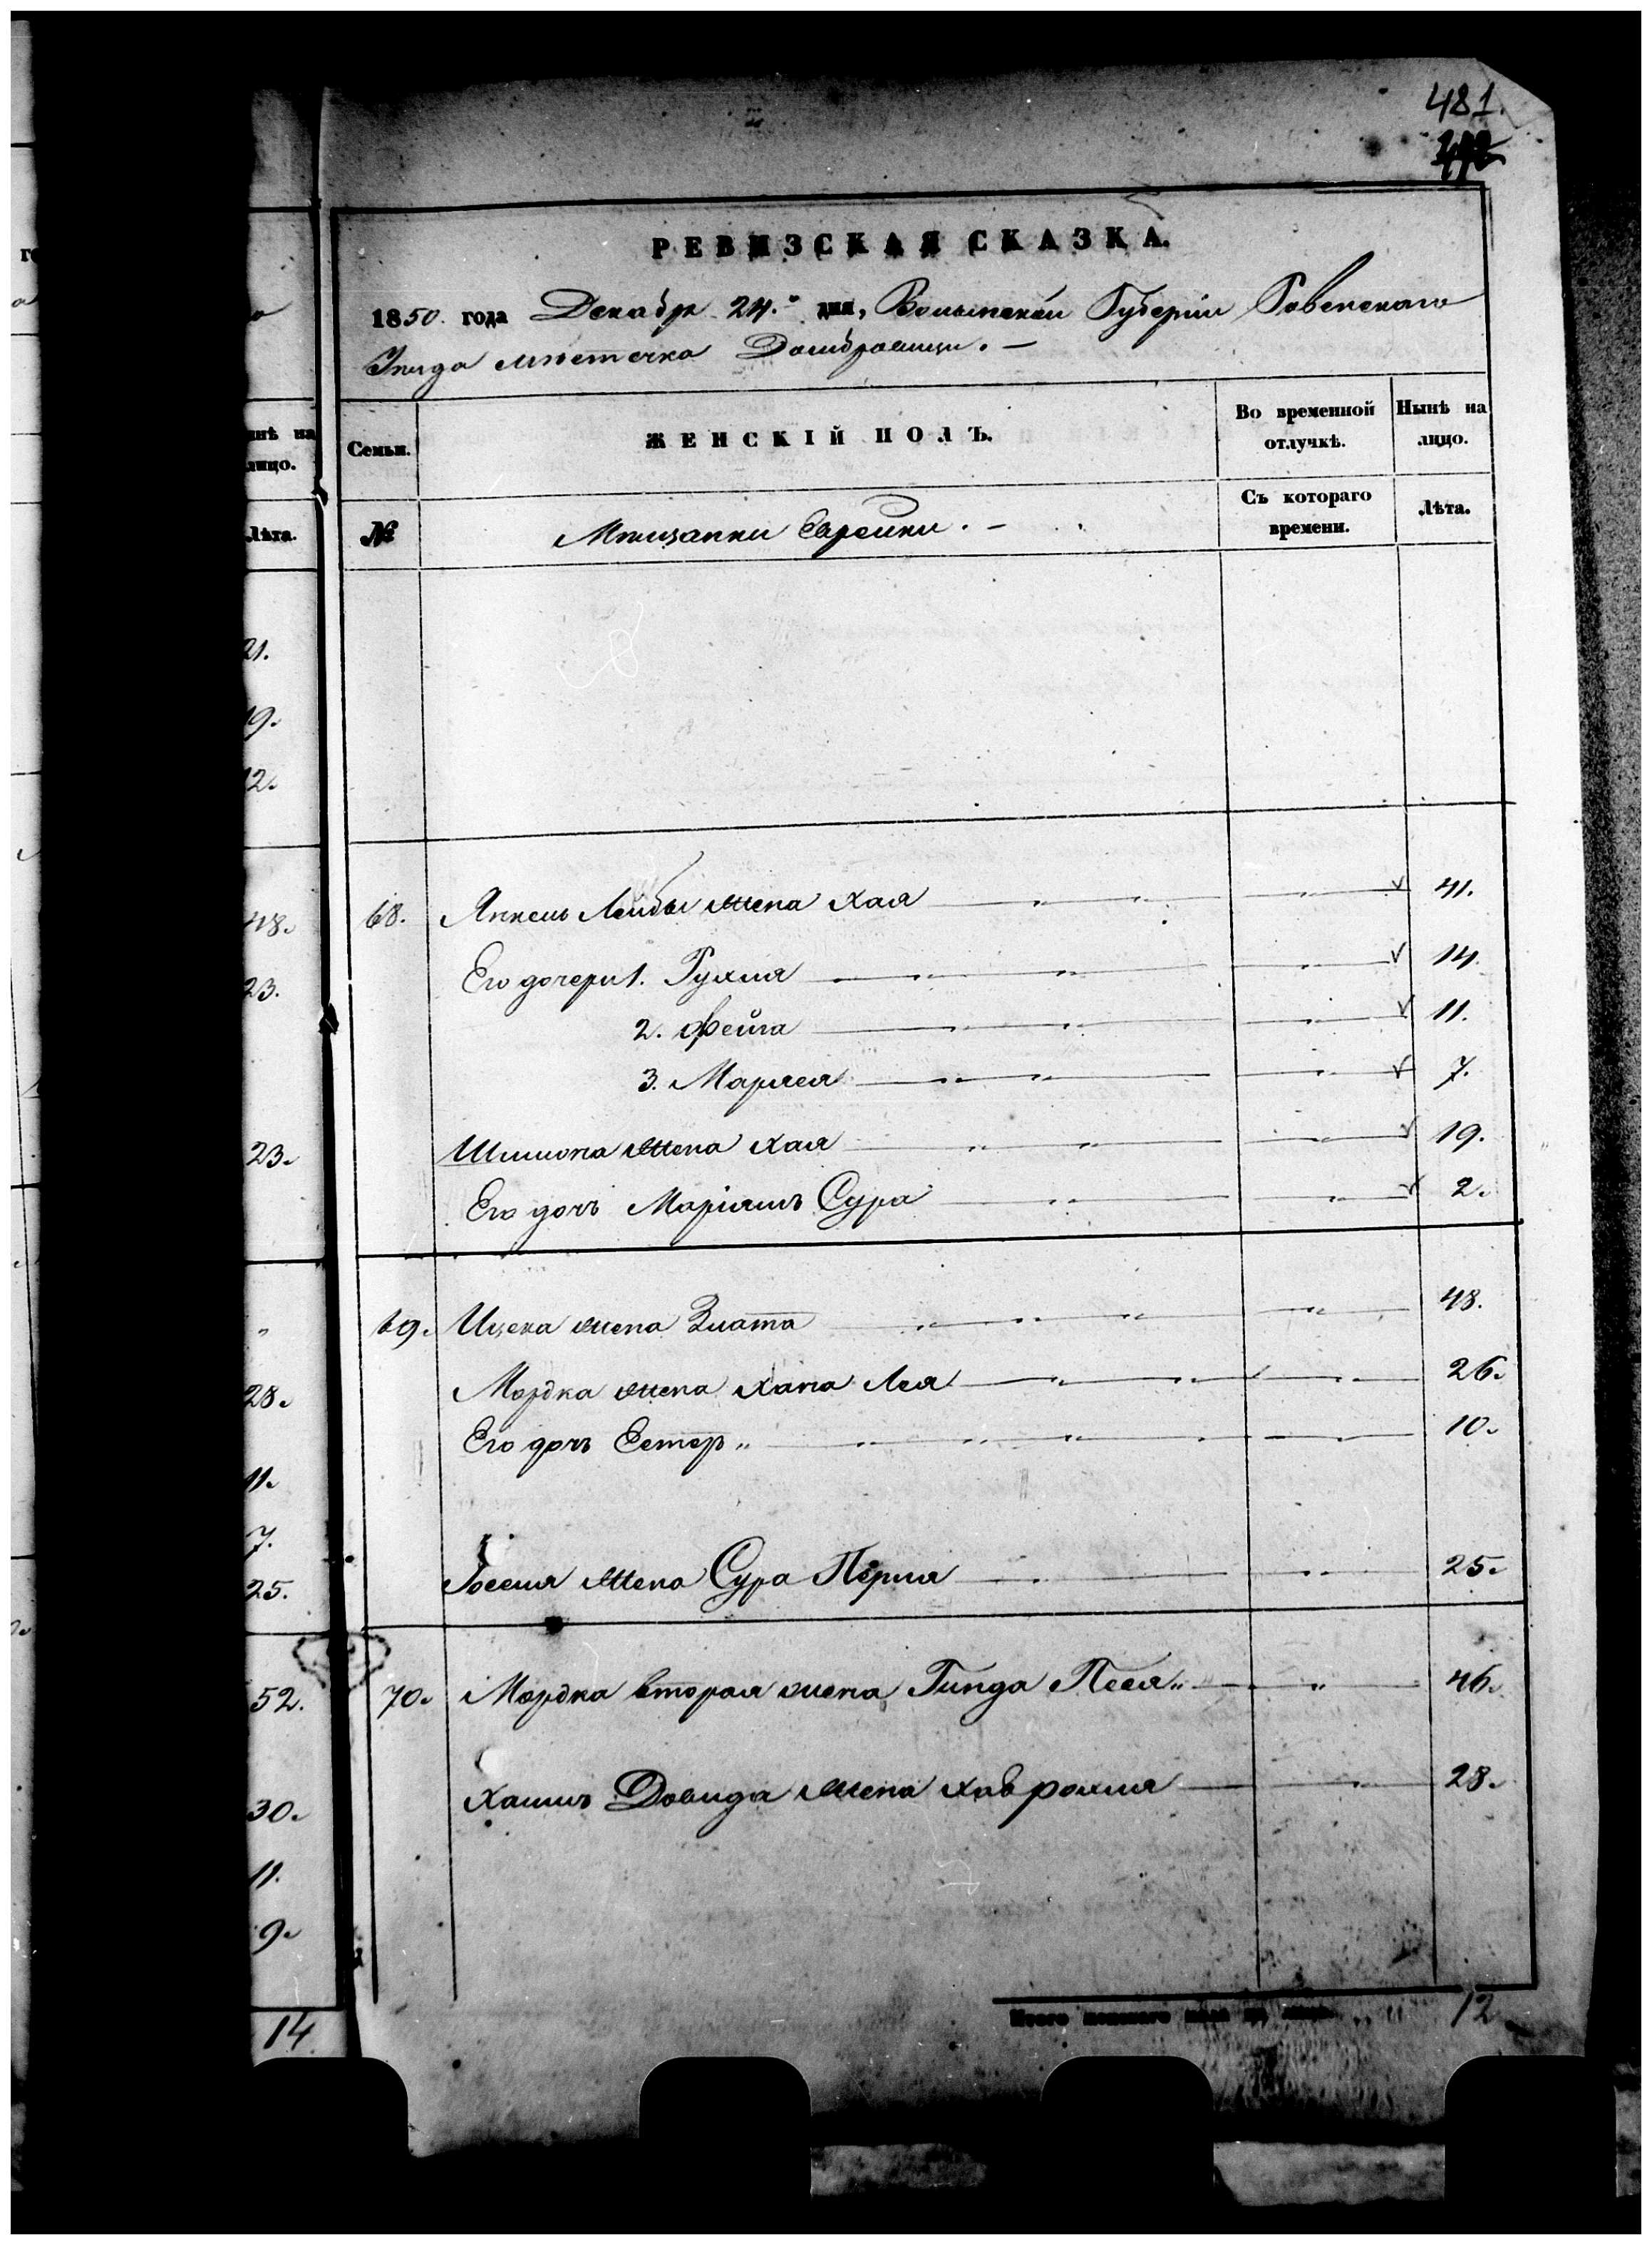 481.
РЕВИЗСКАЯ СКАЗКА.
1850. года Декабр 24.го дня, Волынской Губернiи Ровенскаго
Уезда мѣстечка Домбровицы. —
Семьи.
ЖЕНСКІЙ ПОЛЪ.
Во временной отлучкѣ.
Нынѣ на лицо.
№
Мѣщанки Еврейки. —
Съ котораго времени.
Лѣта.
68. Янкель Лейбы жена Хая 41.
Его дочери 1. Рухля 14.
2. Фейга 11.
3. Маряся 7.
Шлиома жена Хая 19.
Его дочь Маріямъ Сура 2.
69. Ицека жена Злата 48.
Мордка жена Хана Лея 26.
Его дочь Естер „ 10.
Иоселя жена Сура Перля 25.
70. Мордка вторая жена Гинда Песя „ 46.
Хаимъ Довида жена Хав Рохля 28.
Итого женскаго пола на лицо 12
нѣ на
лицо.
Лѣта.
21.
19.
12.
48.
23.
23.
28.
11.
7.
25.
52.
30.
11.
9.
14